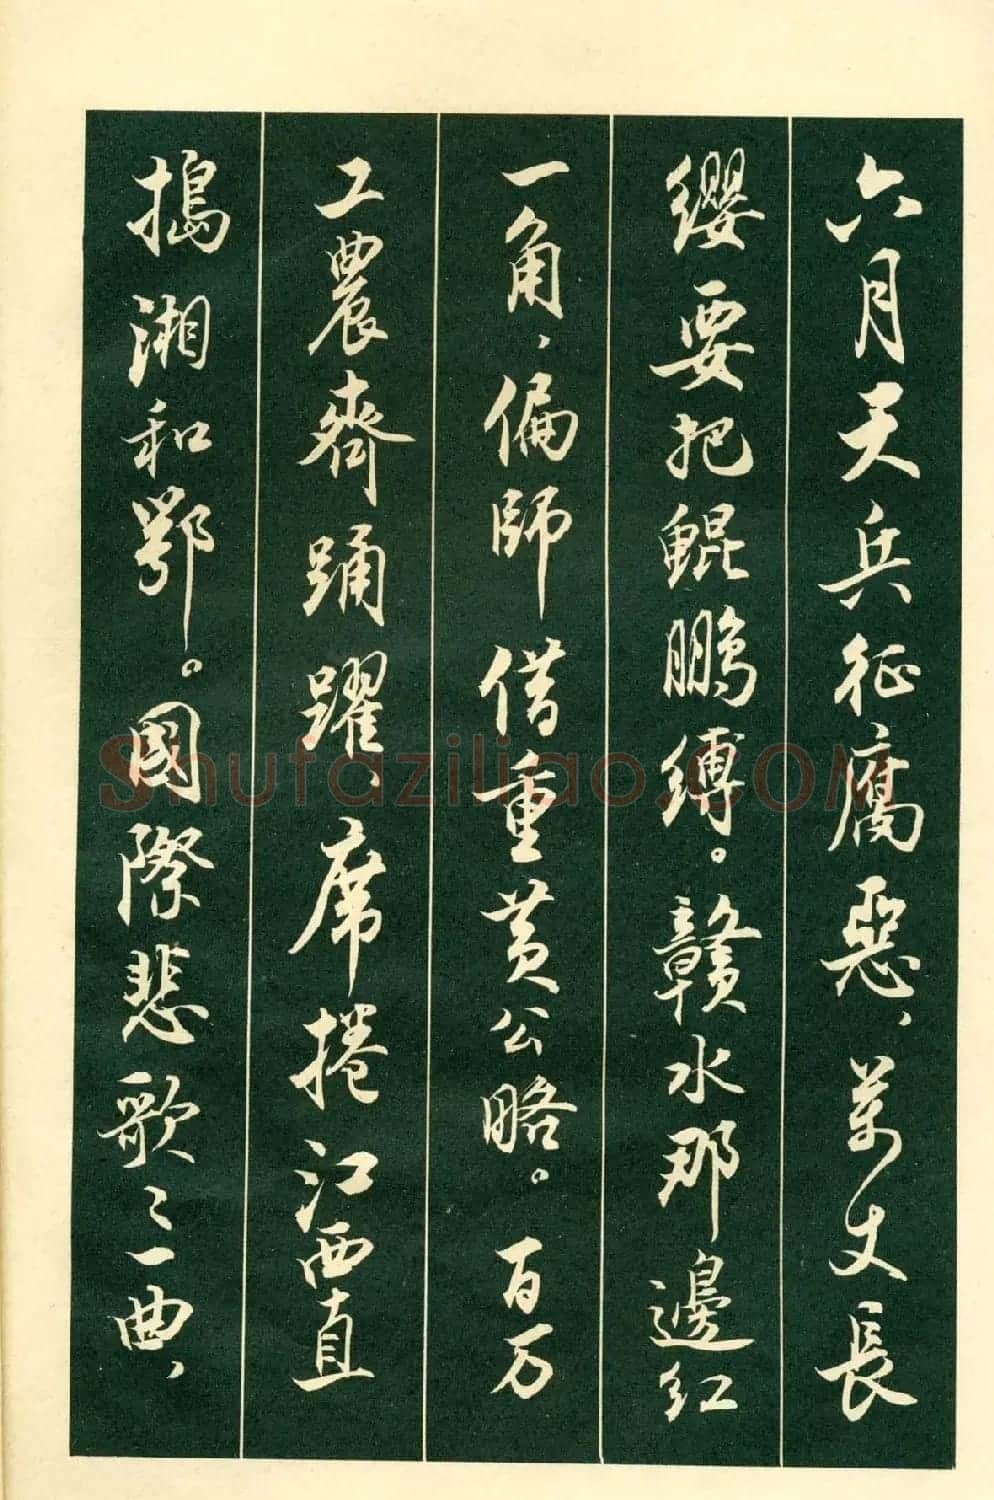 六月天兵征腐惡、萬丈長
纓要把鯤鵬縛。贛水那邊紅
一角、偏師借重黄公略。百万
工農齊踊躍、席捲江西直
搗湘和鄂。國際悲歌〻一曲、
Shufaziliao.COM